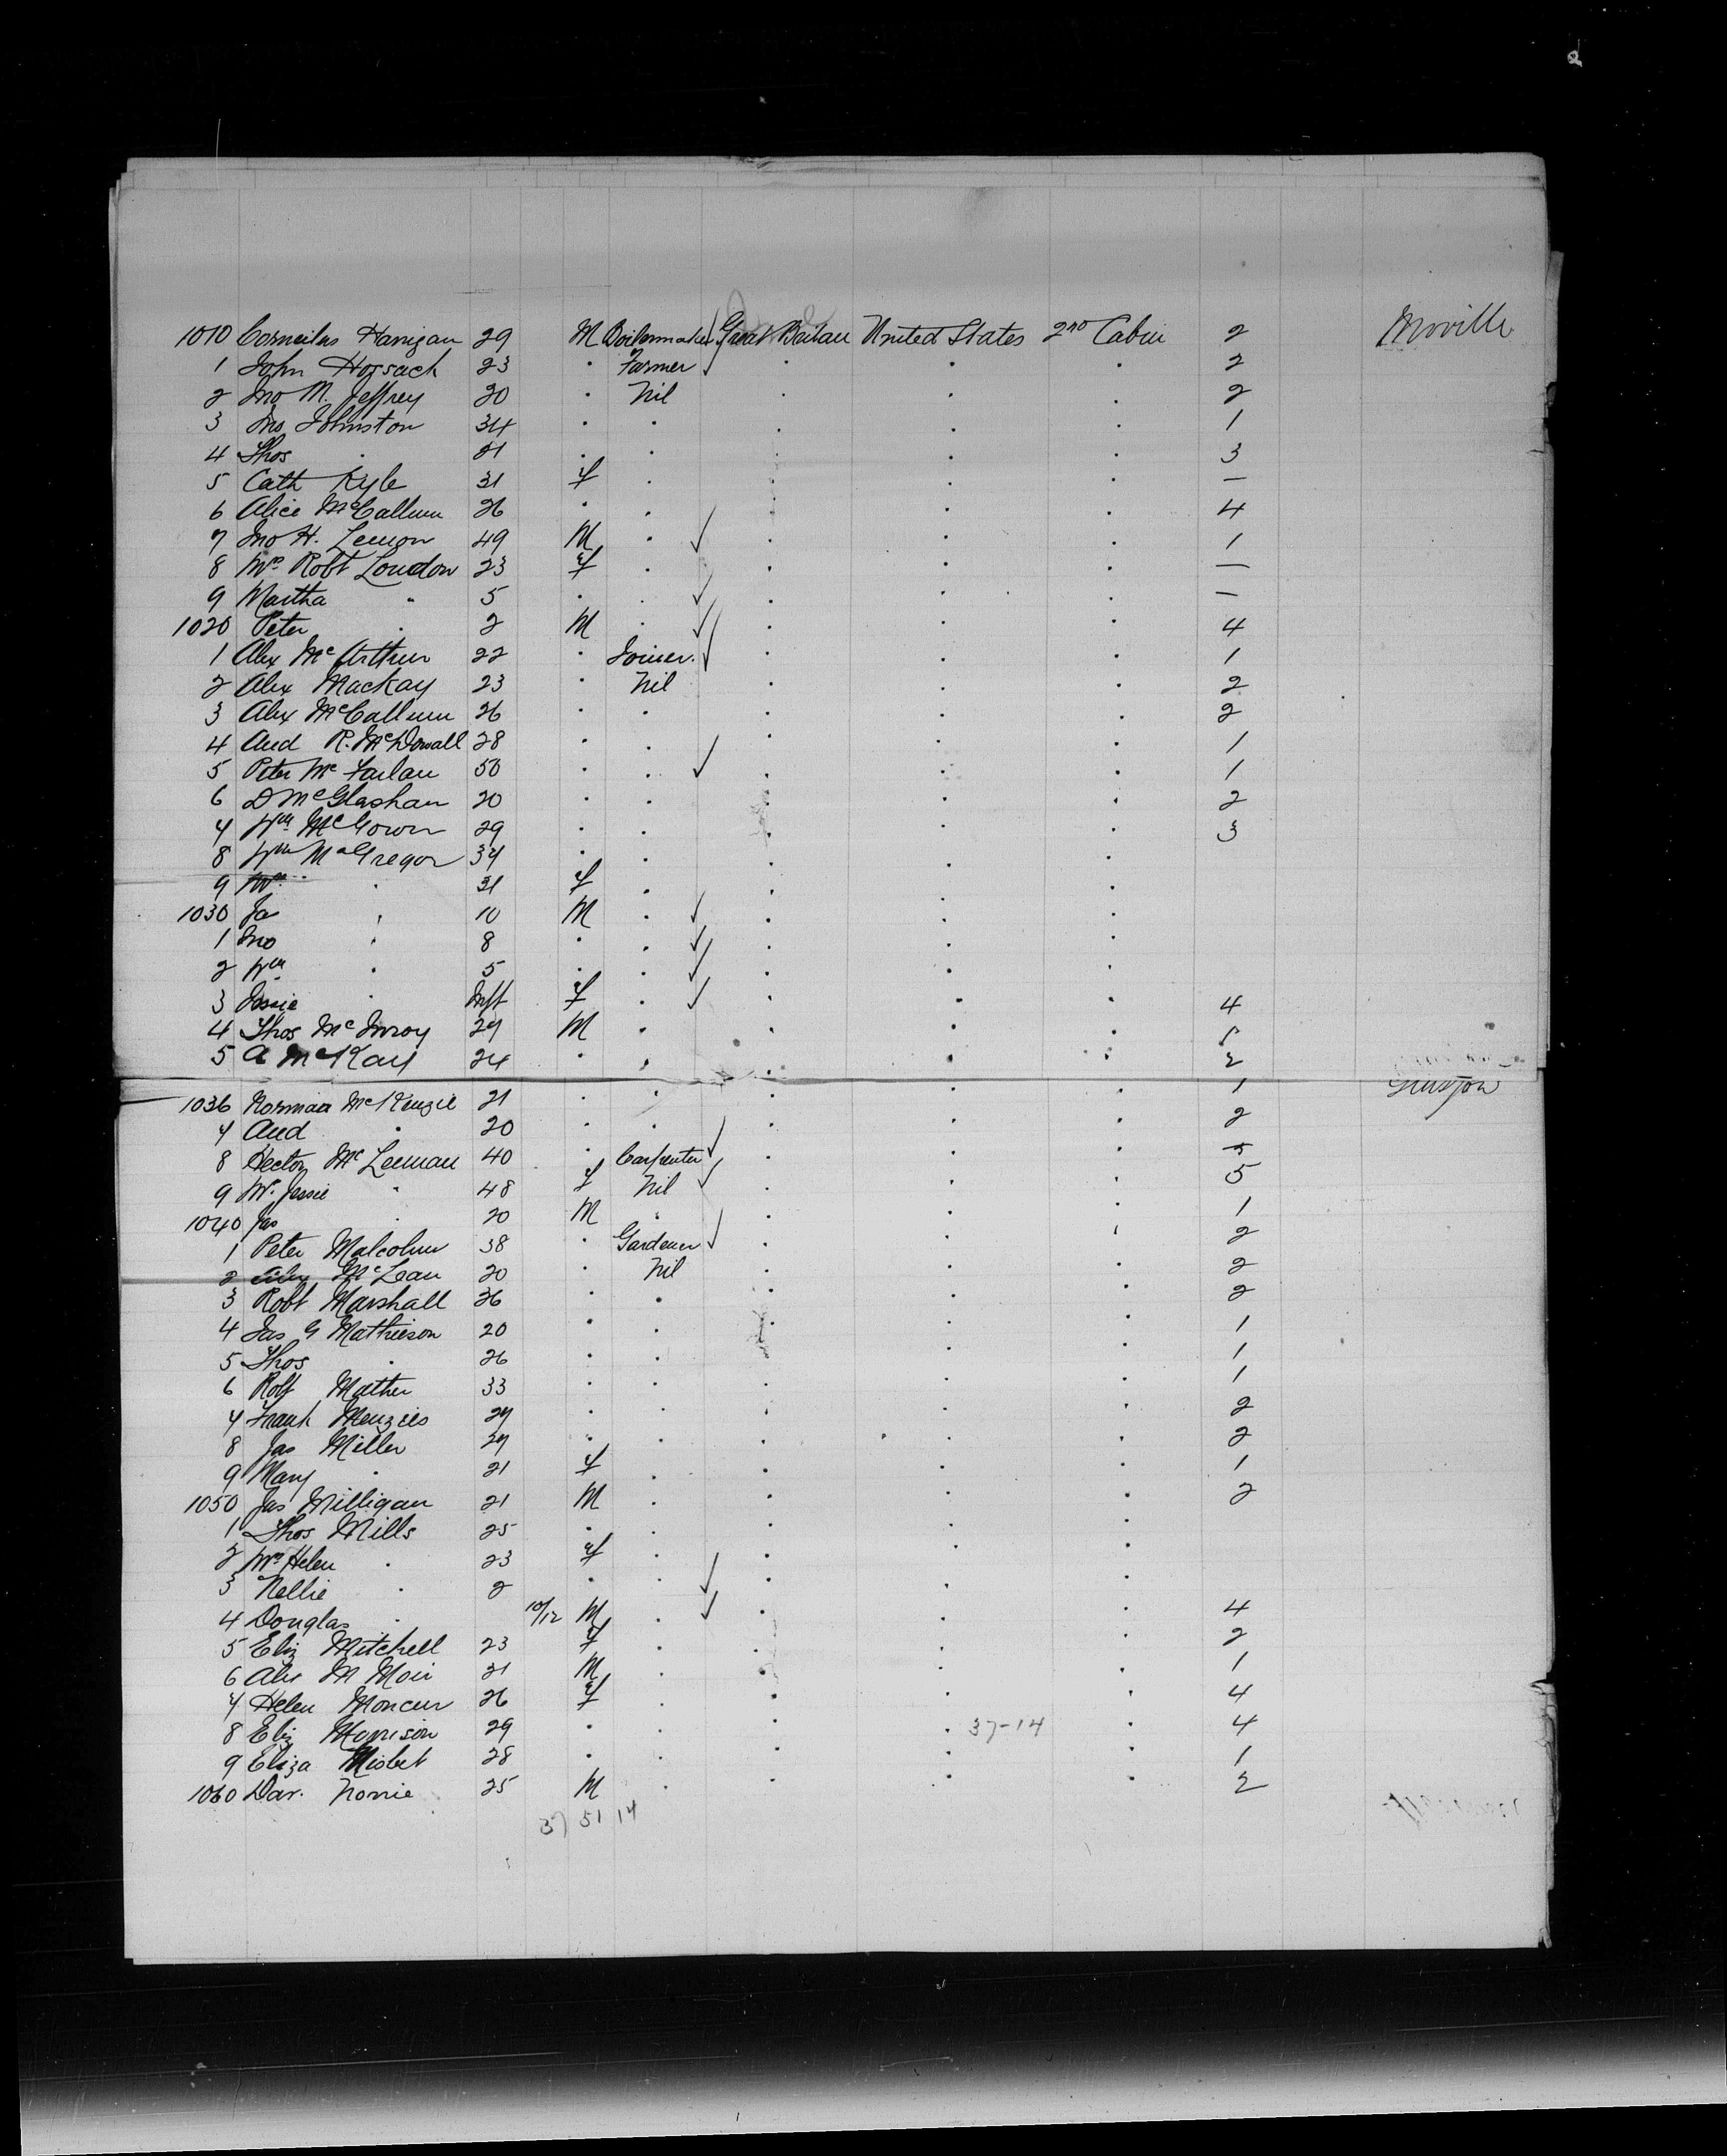 1010 Corneilus Hanigan 29 M Boilermaker √ Great Britain United States 2nd Cabin 2 Moville
1 John Hossack 23 . Farmer √ . . . 2
2 Jno M. Jeffrey 20 . Nil . . . 2
3 Jno Johnston 34 . . . . . 1
4 Thos . 21 . . . . . 3
5 Cath Kyle 31 f . . . . —
6 Alice McCallum 26 . . . . . 4
7 Jno H. Lemon 49 M . √ . . . 1
8 Mrs Robt Loudon 23 f . . . . —
9 Martha . 5 . . √ . . . —
1020 Peter . 2 M . √ . . . 4
1 Alex McArthur 22 . Joiner. √ . . . 1
2 Alex Mackay 23 . Nil . . . 2
3 Alex McCallum 26 . . . . . 2
4 And R. McDowall 28 . . . . . 1
5 Peter McFarlan 50 . . √ . . . 1
6 D McGlashan 20 . . . . . 2
7 Wm McGown 29 . . . . . 3
8 Wm McGregor 34 . . . . .
9 Mrs . 31 f . . . .
1030 Ja . 10 M . √ . . .
1 Jno . 8 . . √ . . .
2 Wm . 5 . . √ . . .
3 Jessie . Inft f . √ . . . 4
4 Thos McInroy 27 M . . . . 1
5 A McKay 24 . . . . . 2
1036 Norman McKenzie 21 . . . . . 1 Glasgow
7 And . 20 . . . . . 2
8 Hector McLennan 40 . Carpenter √ . . . 5
9 Mrs Jessie . 48 f Nil √ . . . 5
1040 Jas . 20 M . . . . 1
1 Peter Malcolm 38 . Gardener √ . . . 2
2 Alex McLean 20 . Nil . . . 2
3 Robt Marshall 26 . . . . . 2
4 Jas G Mathieson 20 . . . . . 1
5 Thos . 26 . . . . . 1
6 Robt Mather 33 . . . . . 1
7 Frank Menzies 27 . . . . . 2
8 Jas Miller 27 . . . . . 2
9 Mary . 21 f . . . . 1
1050 Jas Milligan 21 M . . . . 2
1 Thos Mills 25 . . . . .
2 Mrs Helen . 23 f . . . .
3 Nellie . 2 . . √ . . .
4 Douglas . 10/12 M . √ . . . 4
5 Eliz Mitchell 23 f . . . . 2
6 Alex M Moir 21 M . . . . 1
7 Helen Moncur 26 f . . . . 4
8 Eliz Morrison 29 . . . . 37-14 . 4
9 Eliza Nisbet 28 . . . . . 1
1060 Dav. Norrie 25 M . . . . 2
37 51 14